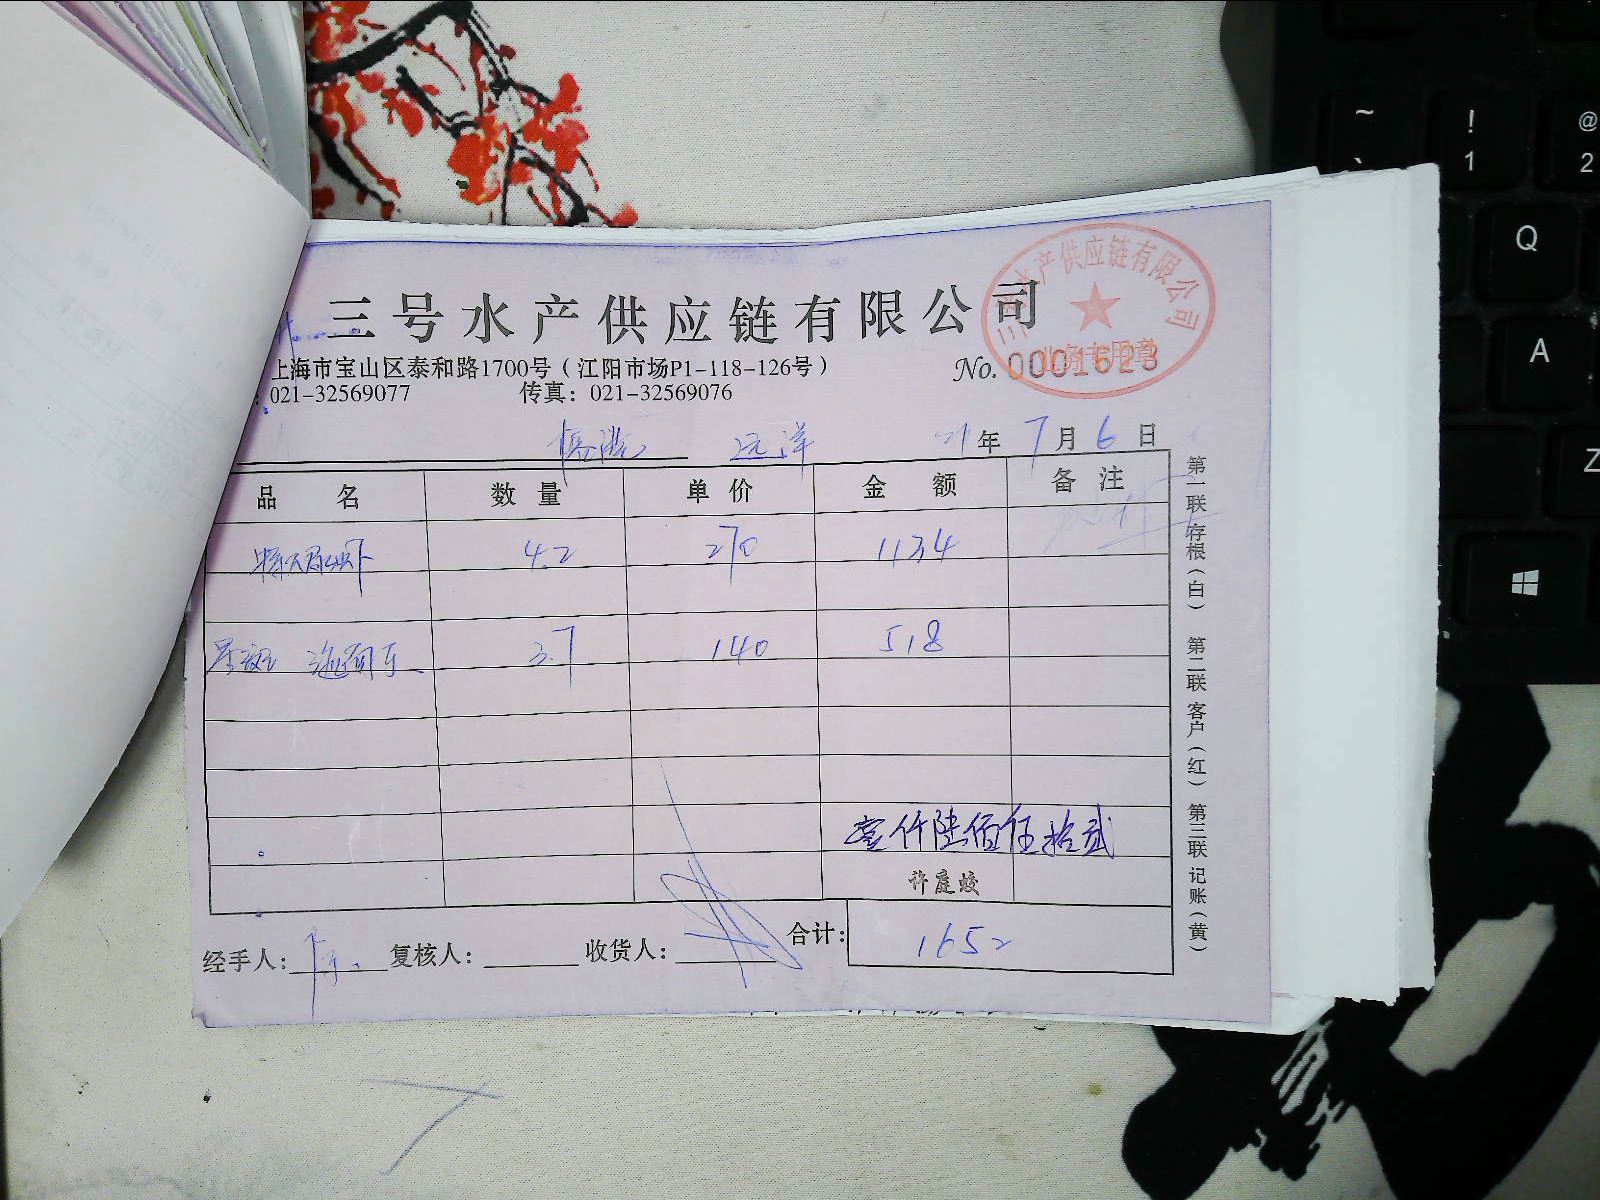 三号水产供应链有限公司
三号水产供应链有限公司
业务专用章
上海市宝山区泰和路1700号（江阳市场P1-118-126号）
No. 0001623
：021-32569077 传真：021-32569076
远洋 21年7月6日
品名 数量 单价 金额 备注
4.2 270 1134
3.7 140 518
壹仟陆佰伍拾贰
许庭蛟
经手人： 复核人： 收货人： 合计： 1652
第一联 存根（白） 第二联 客户（红） 第三联 记账（黄）
~
`
!
1
@
2
Q
A
Z